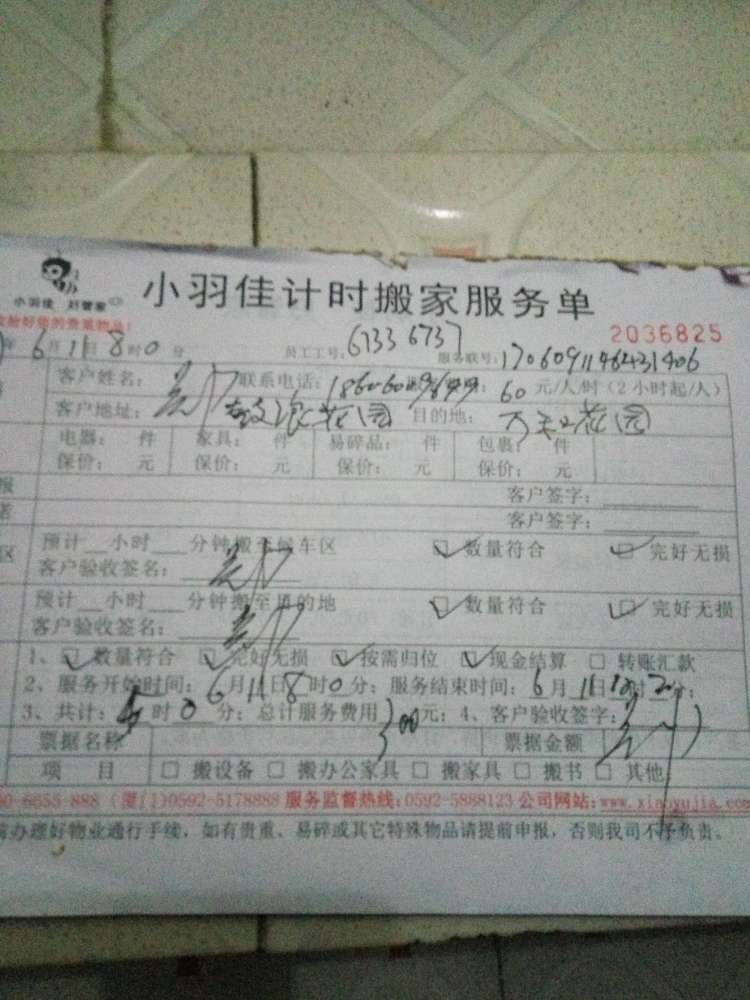 小羽佳 好管家
小羽佳计时搬家服务单
验好您的贵重物品!
2036825
年 6月11日8时0分 员工工号: 6733 6737 服务联号: 1706091146431406
客户姓名: 联系电话: 60元/人/时(2小时起/人)
客户地址: 花园 目的地: 花园
电器: 件 家具: 件 易碎品: 件 包裹: 件
保价: 元 保价: 元 保价: 元 保价: 元
客户签字:
客户签字:
预计__小时___分钟搬至候车区 数量符合 完好无损
客户验收签名:
预计__小时___分钟搬至目的地 数量符合 完好无损
客户验收签名:
1、数量符合 完好无损 按需归位 现金结算 转账汇款
2、服务开始时间: 6月11日8时0分; 服务结束时间: 6月11日 时 分;
3、共计: 时0分; 总计服务费用 300元; 4、客户验收签字:
票据名称 票据金额
项 目 搬设备 搬办公家具 搬家具 搬书 其他
0-6655-888 (厦门)0592-5178888 服务监督热线:0592-5888123 公司网站:www.xiaoyujia.com
办理好物业通行手续,如有贵重、易碎或其它特殊物品请提前申报,否则我司不予负责。